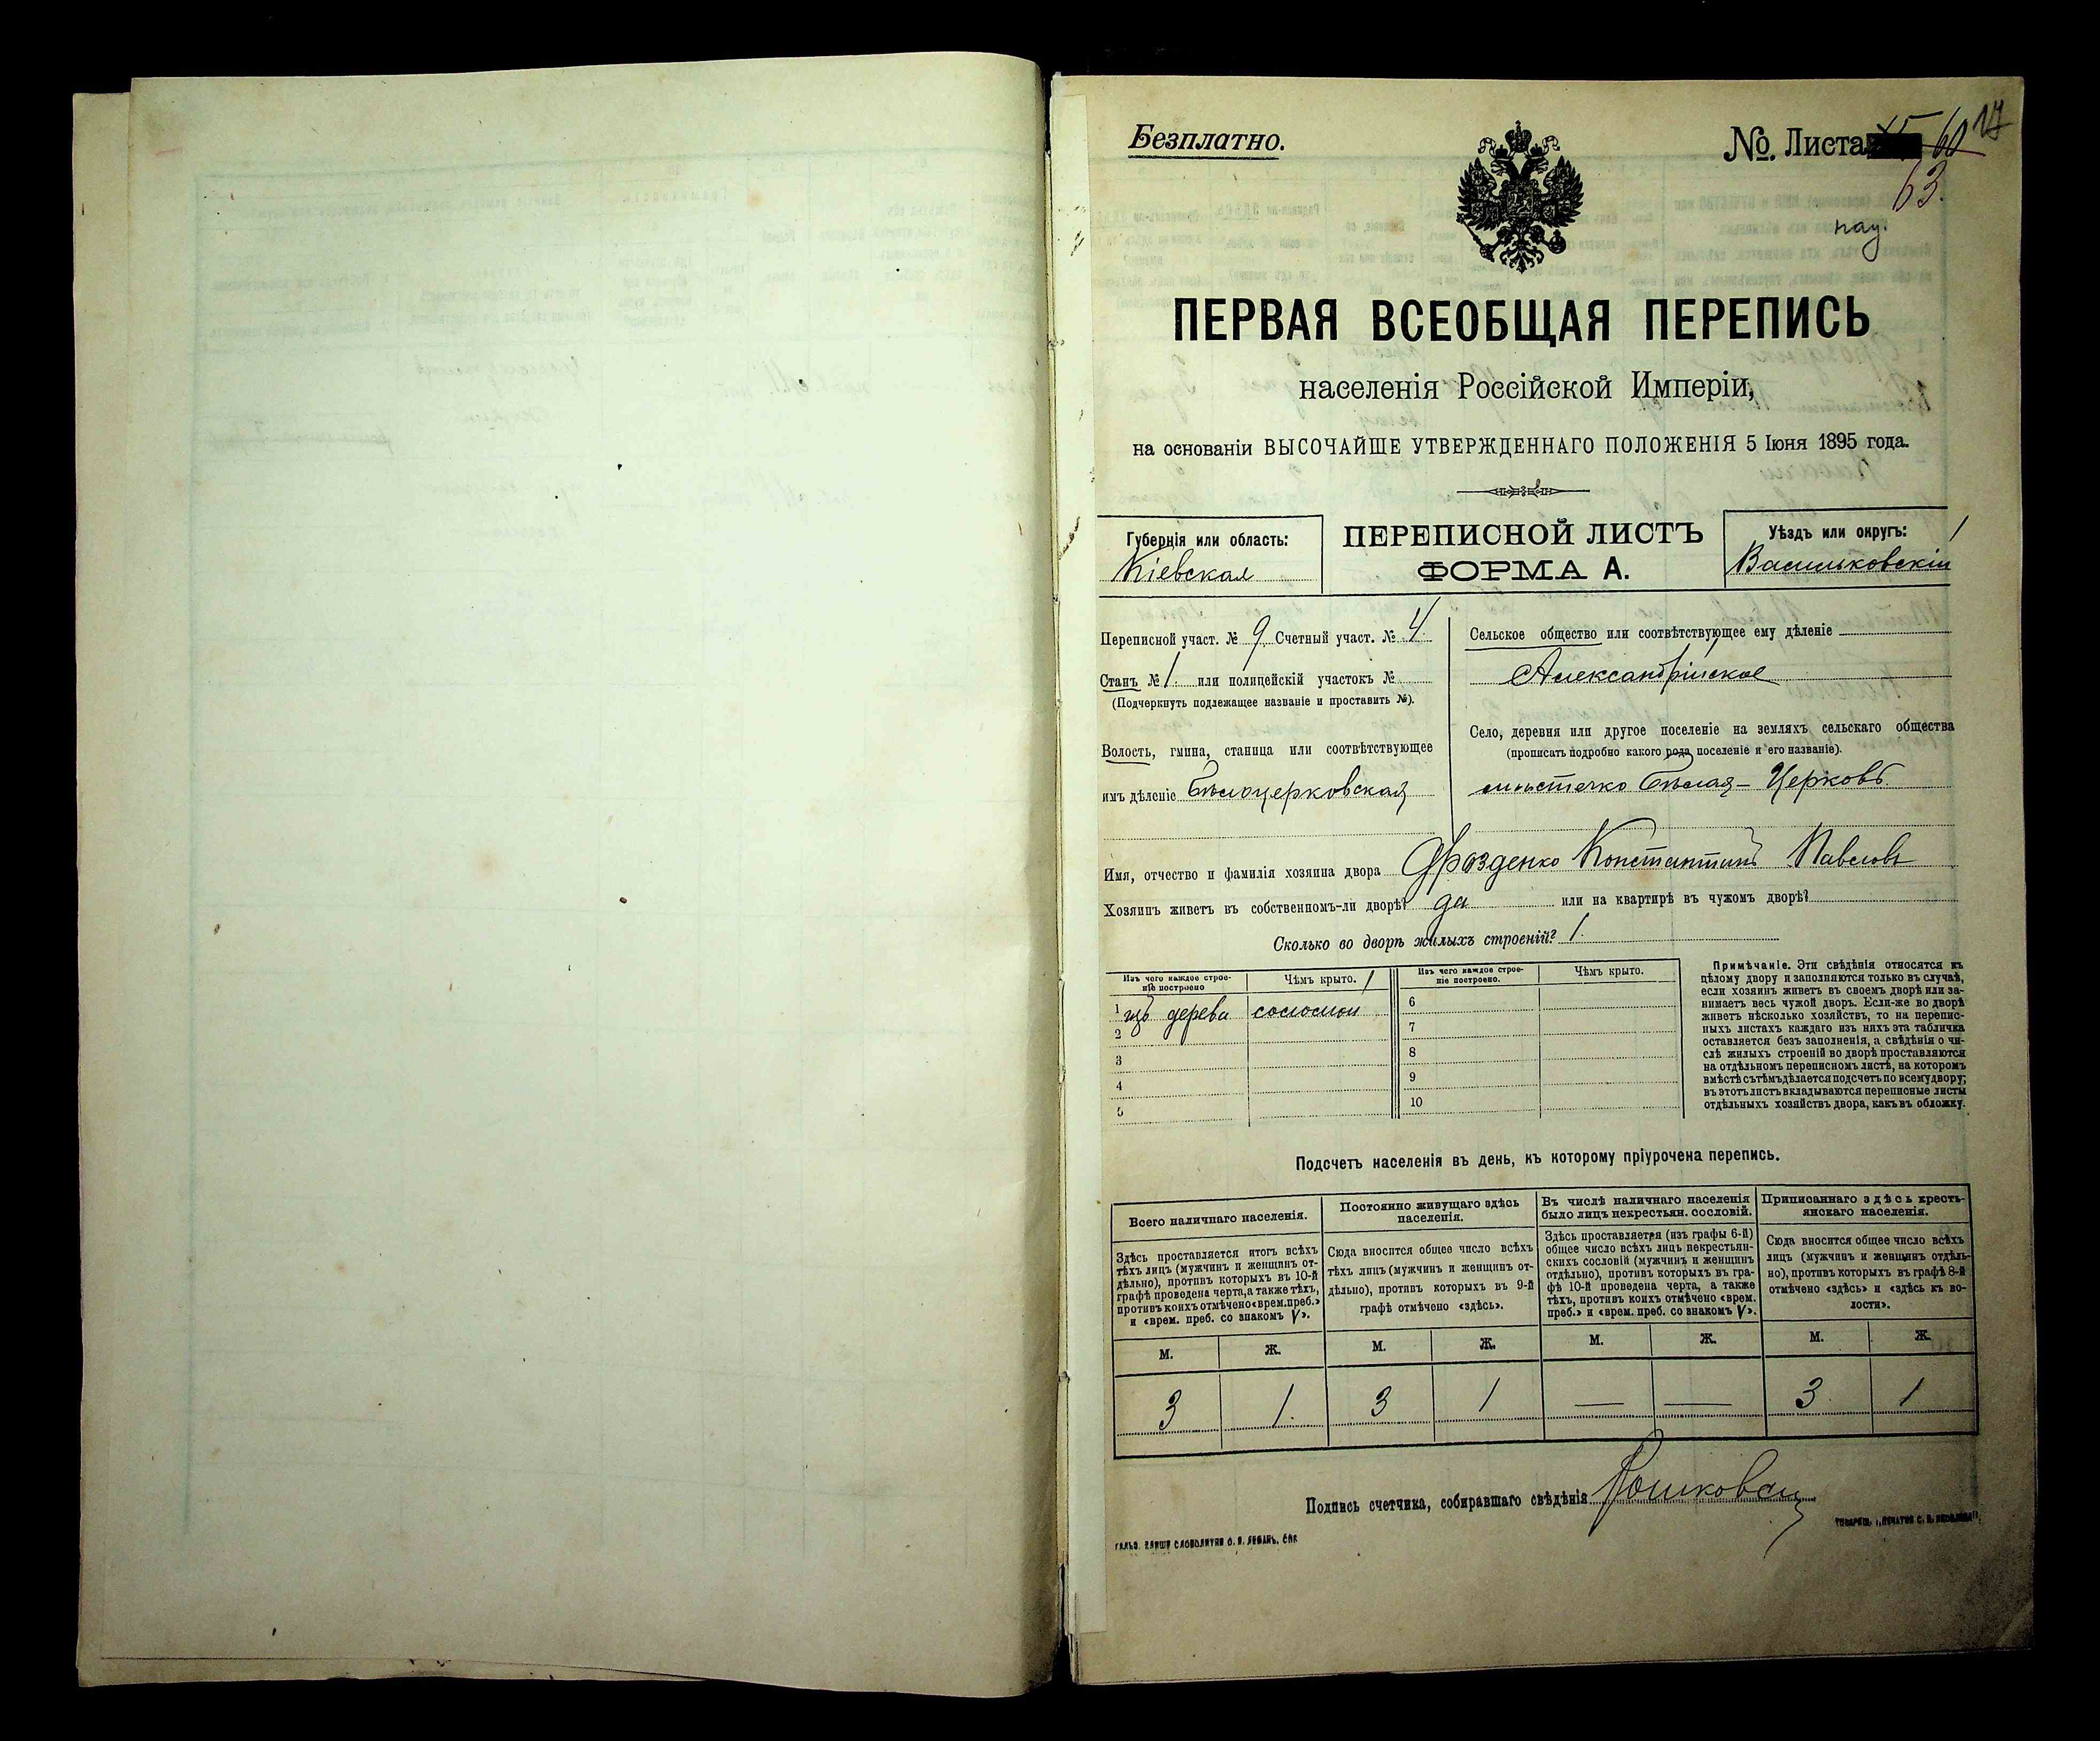 Безплатно.
№. Листа 60 17
63.
ПЕРВАЯ ВСЕОБЩАЯ ПЕРЕПИСЬ
населенія Россійской Имперіи,
на основаніи ВЫСОЧАЙШЕ УТВЕРЖДЕННАГО ПОЛОЖЕНІЯ 5 Іюня 1895 года.
Губернія или область:
Кіевская
ПЕРЕПИСНОЙ ЛИСТЪ
ФОРМА А.
Уѣздъ или округъ:
Васильковскій
Переписной участ. № 9 Счетный участ. № 4.
Станъ № 1. или полицейскій участокъ №
(Подчеркнуть подлежащее названіе и проставить №).
Волость, гмина, станица или соотвѣтствующее
имъ дѣленіе Бѣлоцерковская
Сельское общество или соотвѣтствующее ему дѣленіе
Александрійское
Село, деревня или другое поселеніе на земляхъ сельскаго общества
(прописать подробно какого рода поселеніе и его названіе).
мѣстечко Бѣлая-Церковь
Имя, отчество и фамилія хозяина двора Дрозденко Константинъ Павловъ
Хозяинъ живетъ въ собственномъ-ли дворѣ? да или на квартирѣ въ чужомъ дворѣ?
Сколько во дворѣ жилыхъ строеній? 1.
Изъ чего каждое строе-
ніе построено
Чѣмъ крыто.
Изъ чего каждое строе-
ніе построено.
Чѣмъ крыто.
1 изъ дерева соломой
2
3
4
5
6
7
8
9
10
Примѣчаніе. Эти свѣдѣнія относятся къ
цѣлому двору и заполняются только въ случаѣ,
если хозяинъ живетъ въ своемъ дворѣ или за-
нимаетъ весь чужой дворъ. Если-же во дворѣ
живетъ нѣсколько хозяйствъ, то на перепис-
ныхъ листахъ каждаго изъ нихъ эта табличка
оставляется безъ заполненія, а свѣдѣнія о чи-
слѣ жилыхъ строеній во дворѣ проставляются
на отдѣльномъ переписномъ листѣ, на которомъ
вмѣстѣ съ тѣмъ дѣлается подсчетъ по всему двору;
въ этотъ листъ вкладываются переписные листы
отдѣльныхъ хозяйствъ двора, какъ въ обложку.
Подсчетъ населенія въ день, къ которому пріурочена перепись.
Всего наличнаго населенія.
Здѣсь проставляется итогъ всѣхъ
тѣхъ лицъ (мужчинъ и женщинъ от-
дѣльно), противъ которыхъ въ 10-й
графѣ проведена черта, а также тѣхъ,
противъ коихъ отмѣчено «врем. преб.»
и «врем. преб. со знакомъ V».
Постоянно живущаго здѣсь
населенія.
Сюда вносится общее число всѣхъ
тѣхъ лицъ (мужчинъ и женщинъ от-
дѣльно), противъ которыхъ въ 9-й
графѣ отмѣчено «здѣсь».
Въ числѣ наличнаго населенія
было лицъ некрестьян. сословій.
Здѣсь проставляется (изъ графы 6-й)
общее число всѣхъ лицъ некрестьян-
скихъ сословій (мужчинъ и женщинъ
отдѣльно), противъ которыхъ въ гра-
фѣ 10-й проведена черта, а также
тѣхъ, противъ коихъ отмѣчено «врем.
преб.» и «врем. преб. со знакомъ V».
Приписаннаго здѣсь кресть-
янскаго населенія.
Сюда вносится общее число всѣхъ
лицъ (мужчинъ и женщинъ отдѣль-
но), противъ которыхъ въ графѣ 8-й
отмѣчено «здѣсь» и «здѣсь къ во-
лости».
М. Ж. М. Ж. М. Ж. М. Ж.
3 1. 3 1 — — 3 1
Подпись счетчика, собиравшаго свѣдѣнія